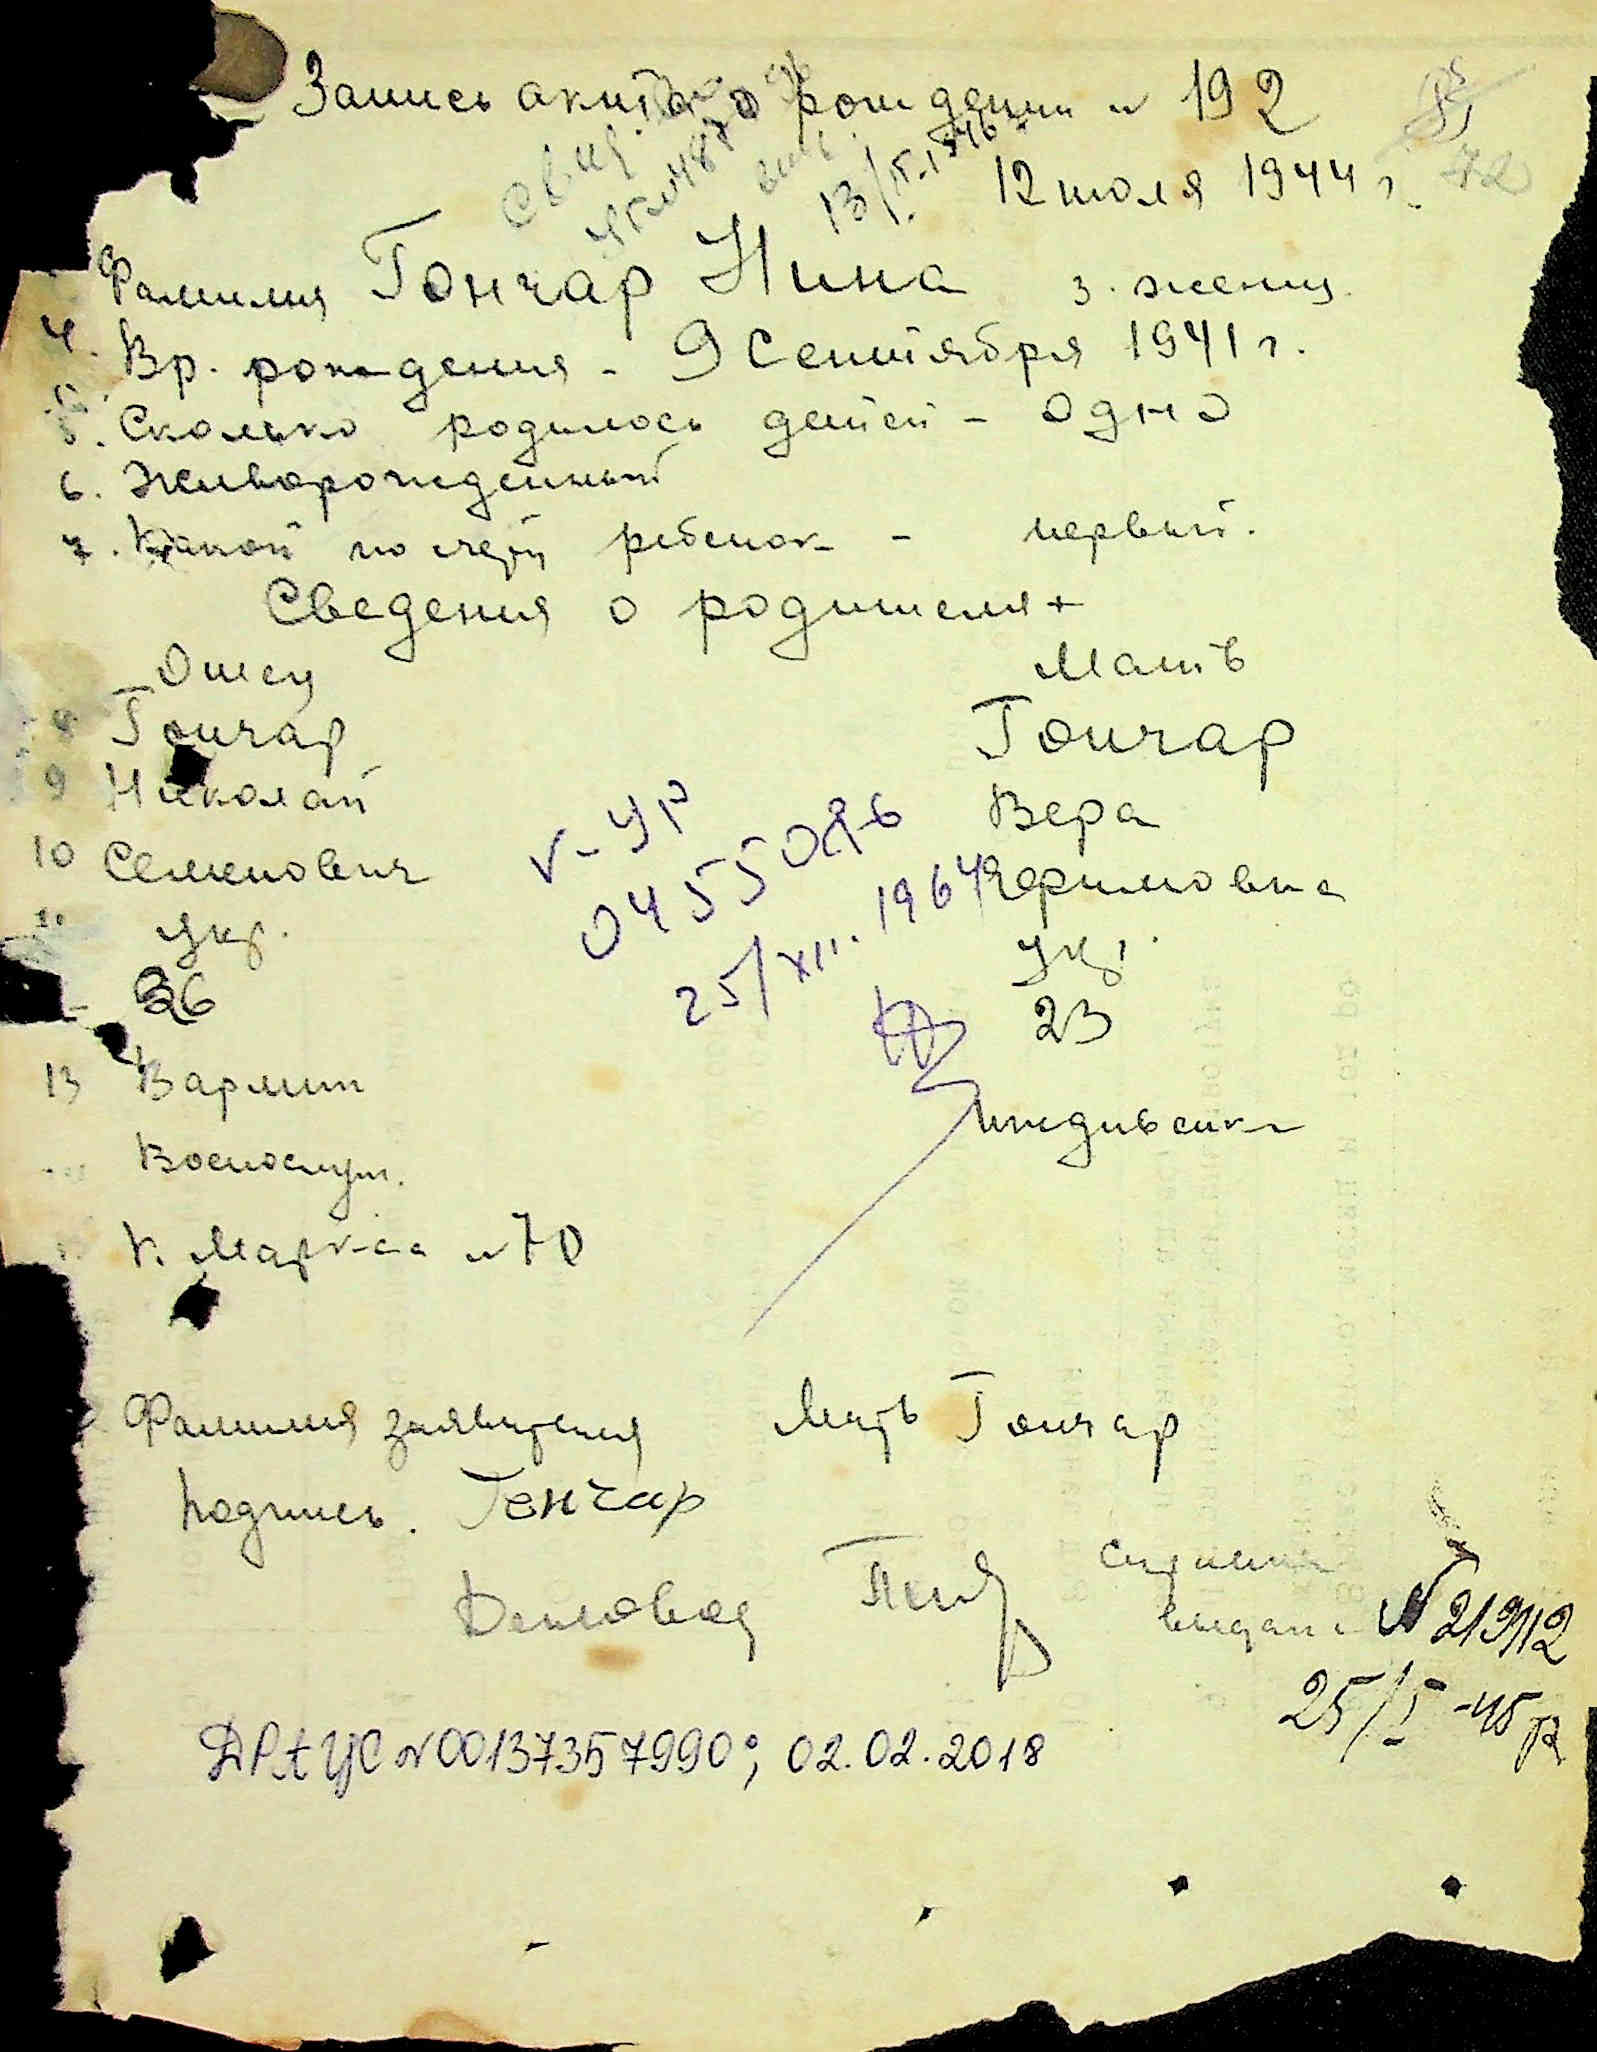 Запись акта о рождении № 192
12 июля 1944 г.
Свид.
13/V-1946
72
Фамилия Гончар Нина 3. женщ.
4. Вр. рождения - 9 Сентября 1941 г.
5. Сколько родилось детей - одно
6. Живорожденный
7. Какой по счету ребенок - первый.
Сведения о родителях
Отец Мать
8 Гончар Гончар
9 Николай Вера
V-УР
10 Семенович Ефимовна
0455086
25/XII. 1964
Укр. Укр.
36 23
13 В армии
иждивенка
Военослуж.
К. Маркса № 70
Фамилия заявителя Мать Гончар
Подпись. Гончар
Деловод
выдана № 219112
25/I-45 г
ДРАЦС № 00137357990; 02.02.2018